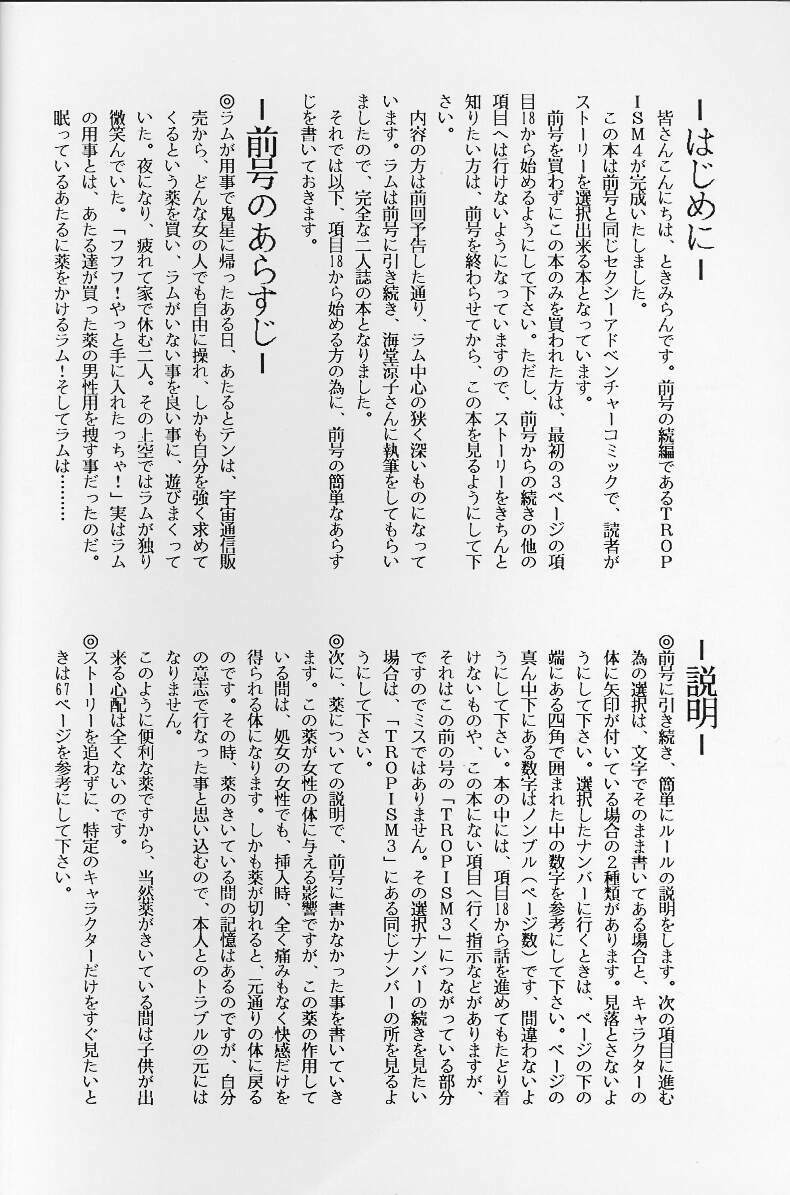 －はじめに－
皆さんこんにちは、ときみらんです。前号の続編であるＴＲＯＰ
ＩＳＭ４が完成いたしました。
この本は前号と同じセクシーアドベンチャーコミックで、読者が
ストーリーを選択出来る本となっています。
前号を買わずにこの本のみを買われた方は、最初の３ページの項
目18から始めるようにして下さい。ただし、前号からの続きの他の
項目へは行けないようになっていますので、ストーリーをきちんと
知りたい方は、前号を終わらせてから、この本を見るようにして下
さい。
内容の方は前回予告した通り、ラム中心の狭く深いものになって
います。ラムは前号に引き続き、海堂涼子さんに執筆をしてもらい
ましたので、完全な二人誌の本となりました。
それでは以下、項目18から始める方の為に、前号の簡単なあらす
じを書いておきます。
－前号のあらすじ－
◎ラムが用事で鬼星に帰ったある日、あたるとテンは、宇宙通信販
売から、どんな女の人でも自由に操れ、しかも自分を強く求めて
くるという薬を買い、ラムがいない事を良い事に、遊びまくって
いた。夜になり、疲れて家で休む二人。その上空ではラムが独り
微笑んでいた。「フフフ！やっと手に入れたっちゃ！」実はラム
の用事とは、あたる達が買った薬の男性用を捜す事だったのだ。
眠っているあたるに薬をかけるラム！そしてラムは………
－説明－
◎前号に引き続き、簡単にルールの説明をします。次の項目に進む
為の選択は、文字でそのまま書いてある場合と、キャラクターの
体に矢印が付いている場合の２種類があります。見落とさないよ
うにして下さい。選択したナンバーに行くときは、ページの下の
端にある四角で囲まれた中の数字を参考にして下さい。ページの
真ん中下にある数字はノンブル（ページ数）です、間違わないよ
うにして下さい。本の中には、項目18から話を進めてもたどり着
けないものや、この本にない項目へ行く指示などがありますが、
それはこの前の号の「ＴＲＯＰＩＳＭ３」につながっている部分
ですのでミスではありません。その選択ナンバーの続きを見たい
場合は、「ＴＲＯＰＩＳＭ３」にある同じナンバーの所を見るよ
うにして下さい。
◎次に、薬についての説明で、前号に書かなかった事を書いていき
ます。この薬が女性の体に与える影響ですが、この薬の作用して
いる間は、処女の女性でも、挿入時、全く痛みもなく快感だけを
得られる体になります。しかも薬が切れると、元通りの体に戻る
のです。その時、薬のきいている間の記憶はあるのですが、自分
の意志で行なった事と思い込むので、本人とのトラブルの元には
なりません。
このように便利な薬ですから、当然薬がきいている間は子供が出
来る心配は全くないのです。
◎ストーリーを追わずに、特定のキャラクターだけをすぐ見たいと
きは67ページを参考にして下さい。